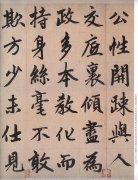 公性開疎與人
交底裏傾盡為
政多本教化而
持身絲毫不敢
欺方少未仕見